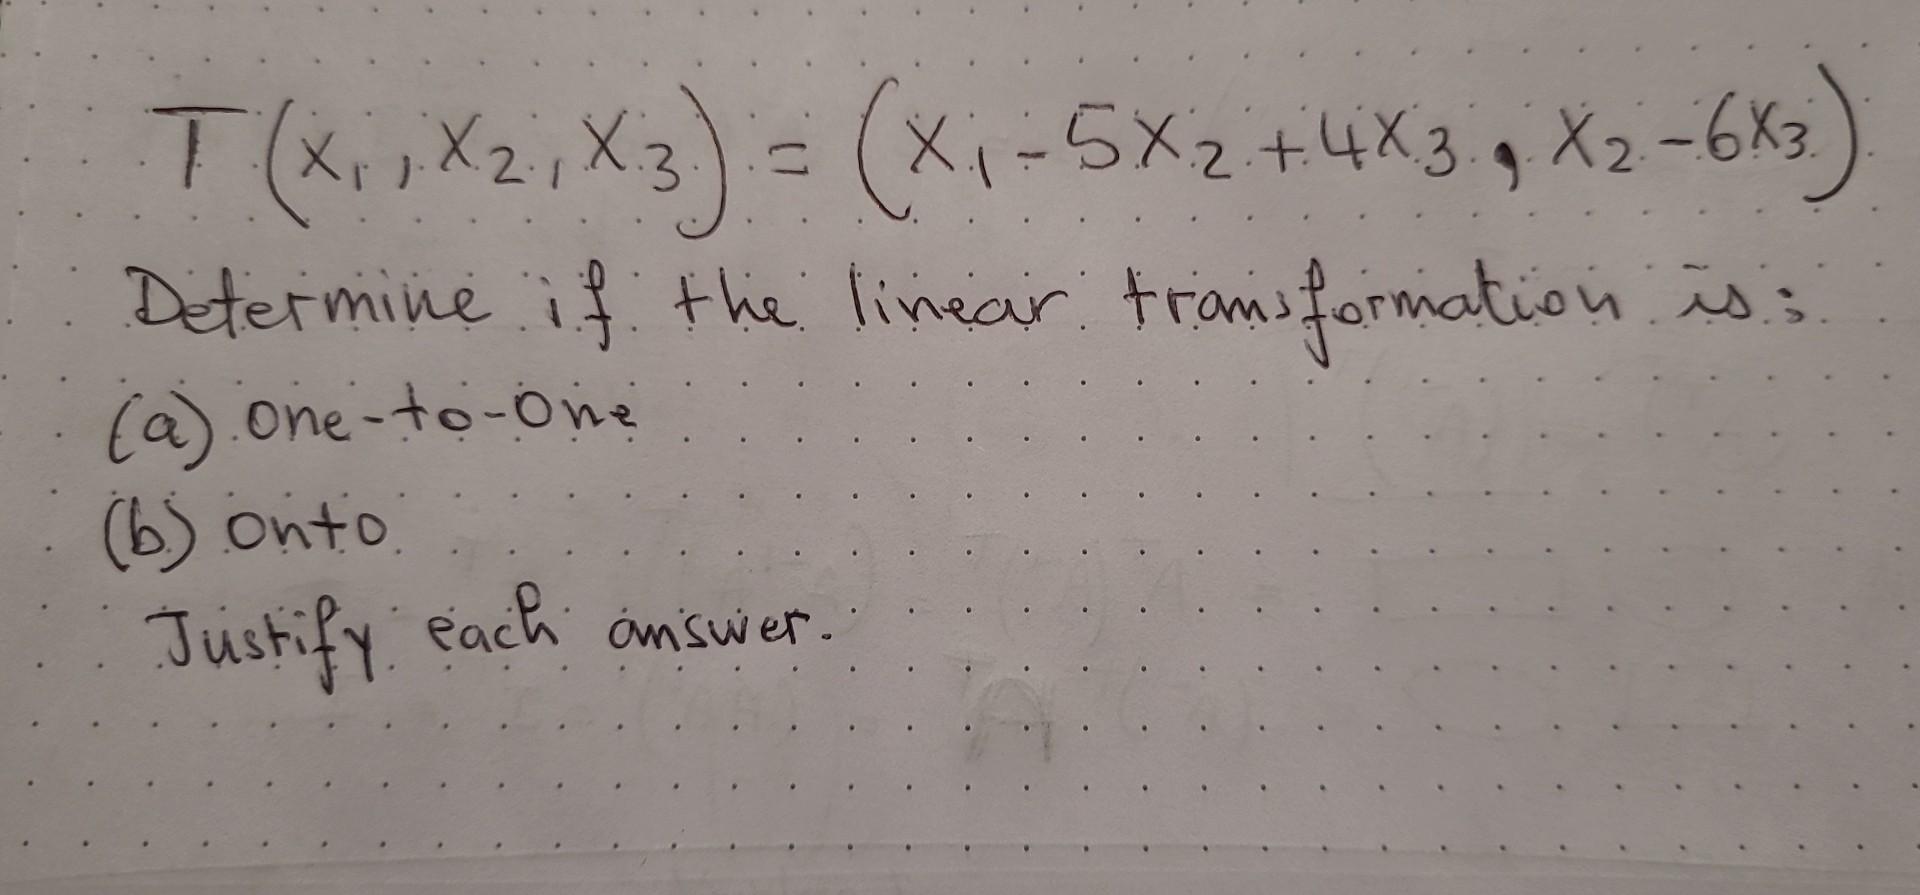 T(x₁, x₂, x₃) = (x₁ - 5x₂ + 4x₃, x₂ - 6x₃)
Determine if the linear transformation is:
(a) one-to-one
(b) onto
Justify each answer.